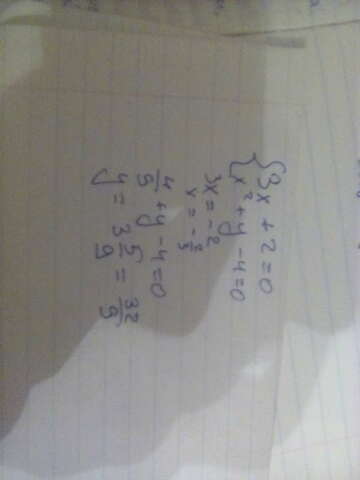 {3x + 2 = 0
{x² + y - 4 = 0
3x = -2
x = -2/3
4/9 + y - 4 = 0
y = 3 5/9 = 32/9